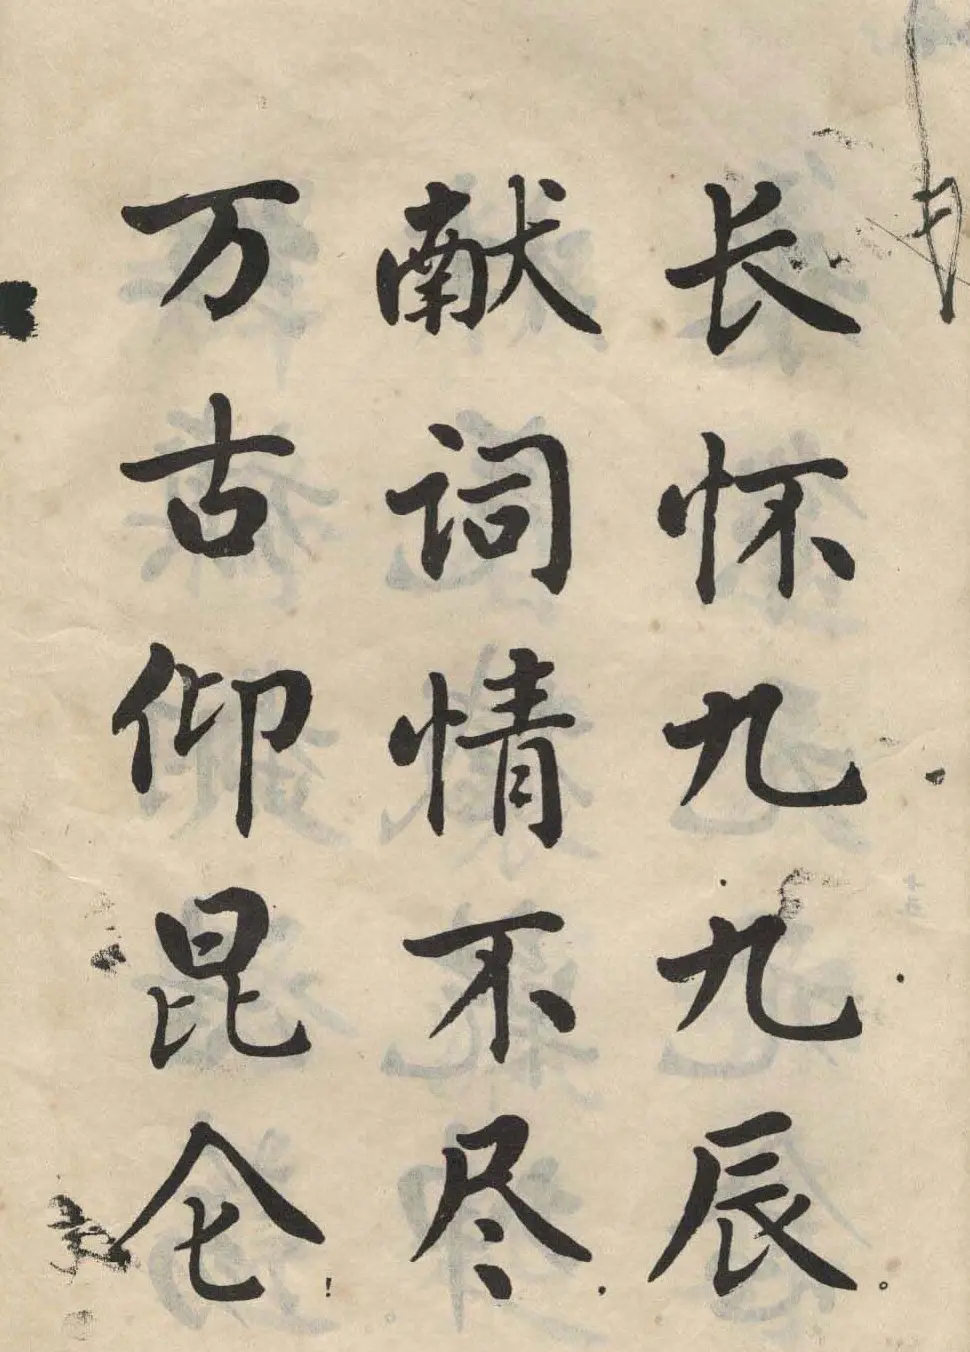 长怀九九辰。
献词情不尽.
万古仰昆仑!